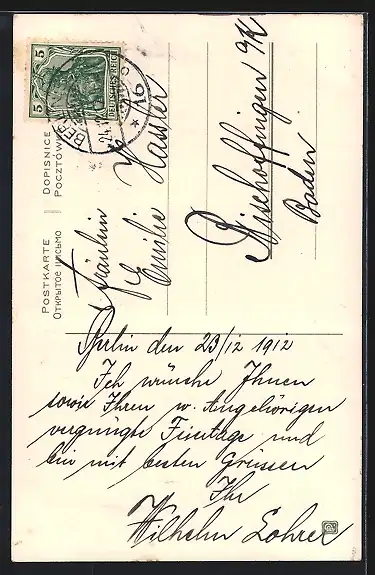 5
5
DEUTSCHES REICH
BERLIN
24.12
* 16 *
POSTKARTE
DOPISNICE
ОТКРЫТОЕ ПИСЬМО
POCZTÓWKA
Fräulein
Emilie Hassler
Bischoffingen a/K
Baden
Berlin den 23/12 1912
Ich wünsche Ihnen
sowie Ihren w. Angehörigen
vergnügte Feiertage und
bin mit besten Grüssen
Ihr
Wilhelm Lohrer